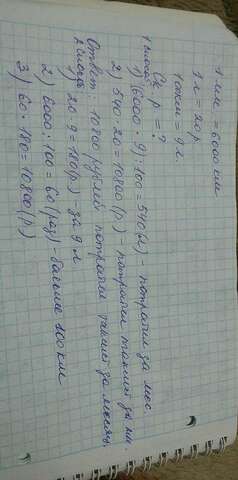 1 мес = 6000 км
1 л = 20 р
100км = 9 л.
Ск р = ?
1 способ
1) (6000 · 9) : 100 = 540 (л) - потратил за мес
2) 540 · 20 = 10800 (р) - потратил таксист за м.
Ответ: 10800 рублей потратил таксист за месяц.
2 способ
1) 20 · 9 = 180 (р) - за 9 л.
2) 6000 : 100 = 60 (раз) - больше 100 км
3) 60 · 180 = 10800 (р)